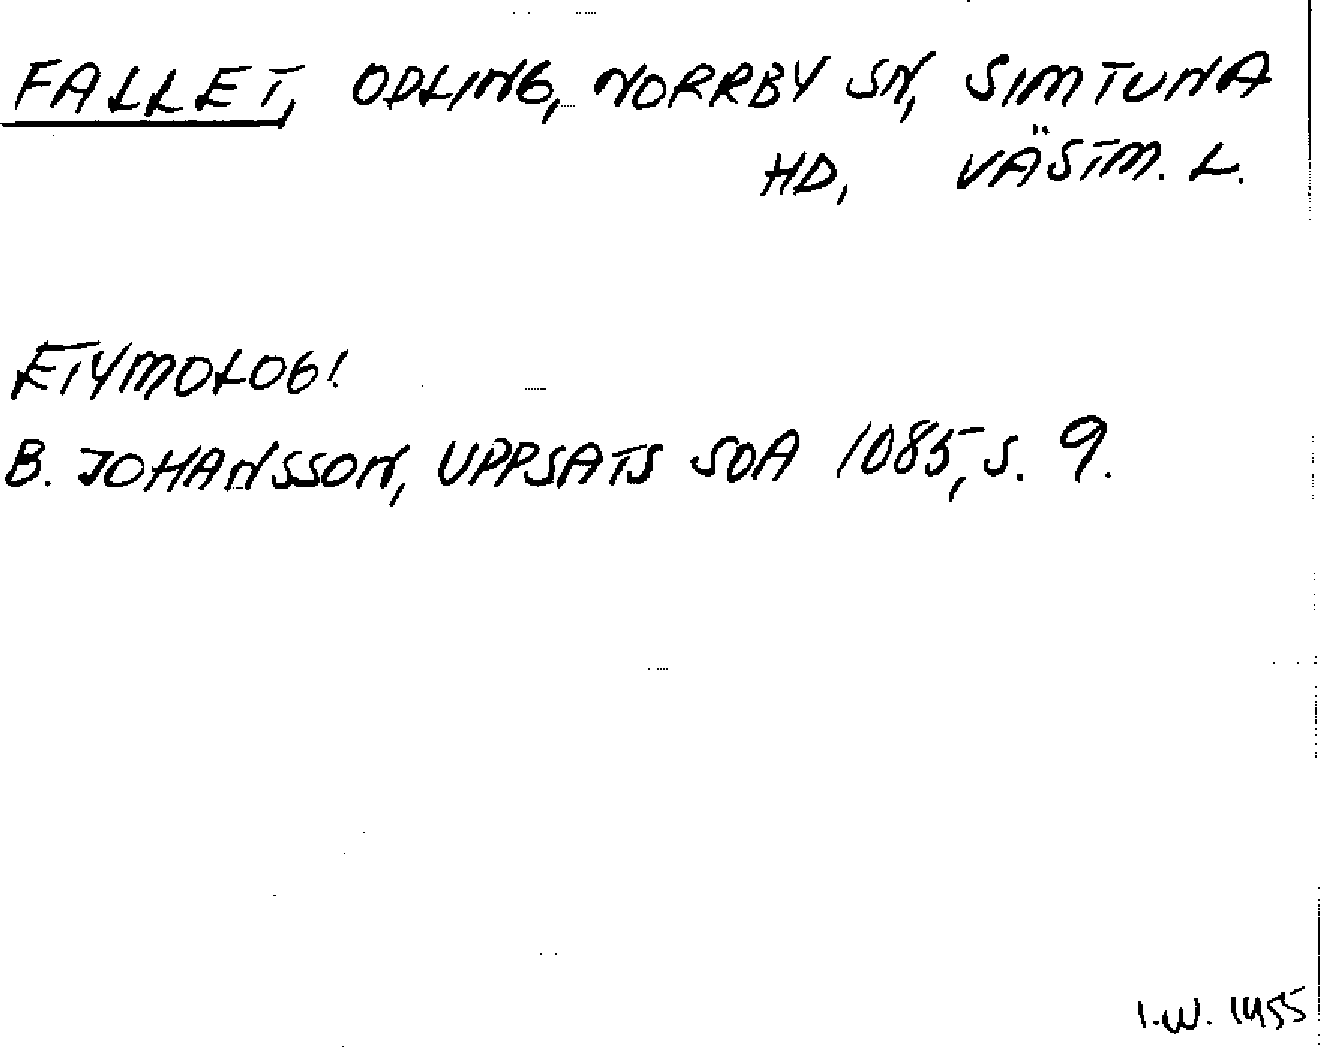 FALLET, ODLING, NORRBY SN, SIMTUNA
HD, VÄSTM. L.
ETYMOLOGI
B. JOHANSSON, UPPSATS SOA 1085, S. 9.
I.W. 1955